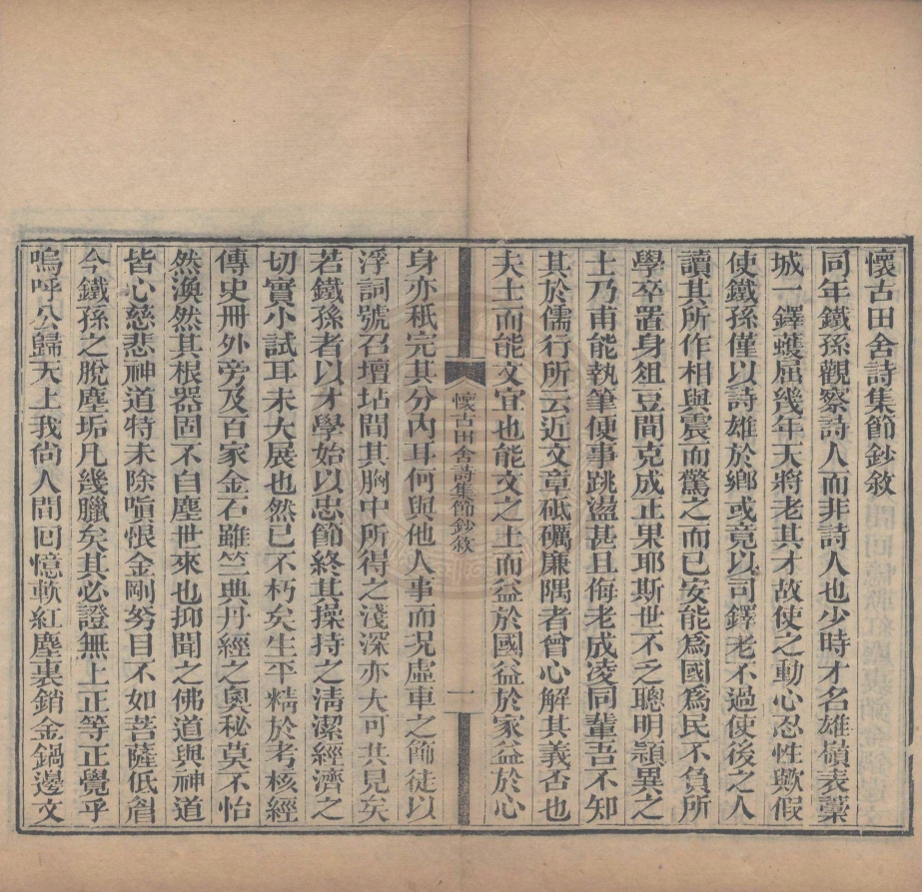 懷古田舍詩集節鈔敘
同年鐵孫觀察詩人而非詩人也少時才名雄嶺表藁
城一鐸蠖屈幾年天將老其才故使之動心忍性歟假
使鐵孫僅以詩雄於鄉或竟以司鐸老不過使後之人
讀其所作相與震而驚之而已安能爲國爲民不負所
學卒置身俎豆間克成正果耶斯世不乏聰明穎異之
士乃甫能執筆便事跳盪甚且侮老成凌同輩吾不知
其於儒行所云近文章砥礪廉隅者曾心解其義否也
夫士而能文宜也能文之士而益於國益於家益於心
懷古田舍詩集節鈔敘
一
身亦秖完其分內耳何與他人事而況虛車之飾徒以
浮詞號召壇坫間其胸中所得之淺深亦大可共見矣
若鐵孫者以才學始以忠節終其操持之清潔經濟之
切實小試耳未大展也然已不朽矣生平精於考核經
傳史冊外旁及百家金石雖竺典丹經之奧秘莫不怡
然渙然其根器固不自塵世來也抑聞之佛道與神道
皆心慈悲神道特未除嗔恨金剛努目不如菩薩低眉
今鐵孫之脫塵垢凡幾臘矣其必證無上正等正覺乎
嗚呼公歸天上我尙人間回憶軟紅塵裏銷金鍋邊文